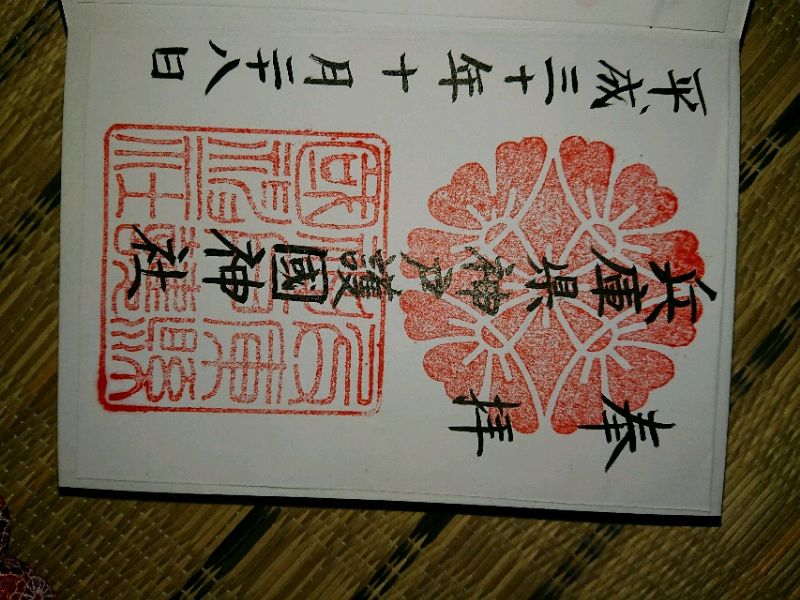 奉拝
兵庫県神戸護國神社
平成三十年十月二十八日
兵庫縣
神戸護
國神社